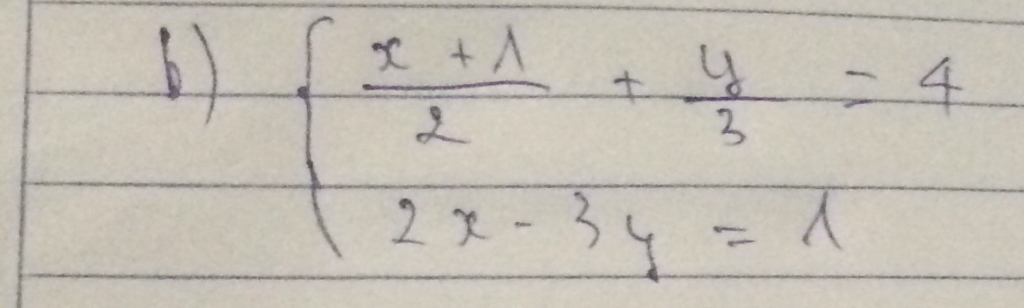 b) { (x + 1)/2 + y/3 = 4
2x - 3y = 1